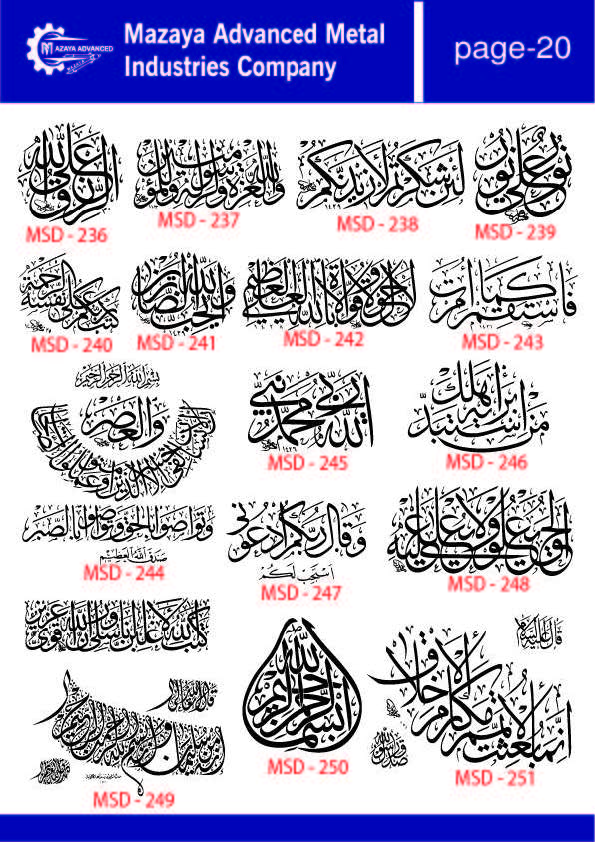 MAZAYA ADVANCED
Mazaya Advanced Metal
Industries Company
page-20
الرزق على الله
MSD - 236
ولله العزة ولرسوله وللمؤمنين
MSD - 237
لئن شكرتم لأزيدنكم
MSD - 238
نور على نور
MSD - 239
كتب ربكم على نفسه الرحمة
MSD - 240
والله يحب الصابرين
MSD - 241
لا حول ولا قوة إلا بالله العلي العظيم
MSD - 242
فاستقم كما أمرت
MSD - 243
بسم الله الرحمن الرحيم
والعصر
وتواصوا بالحق وتواصوا بالصبر
صدق الله العظيم
MSD - 244
محمد نبي
الله
MSD - 245
من استبد
برأيه هلك
MSD - 246
وقال ربكم ادعوني
أستجب لكم
MSD - 247
الحق يعلو ولا يعلى عليه
MSD - 248
كتب الله لأغلبن أنا ورسلي إن الله قوي عزيز
قال الله تعالى
إنه من سليمان وإنه بسم الله الرحمن الرحيم
MSD - 249
بسم الله الرحمن الرحيم
MSD - 250
قال عليه السلام
إنما بعثت لأتمم مكارم الأخلاق
صدق رسول الله
MSD - 251